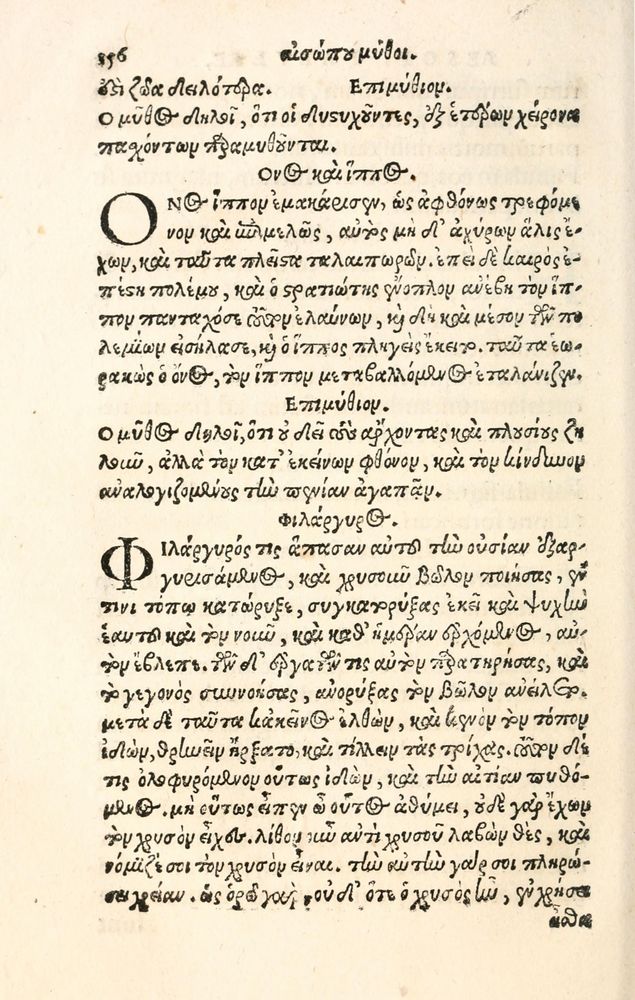 156 αἰσώπου μῦθοι.
ἐςὶ ζῶα δειλότερα. Επιμύθιον.
Ο μῦθος δηλοῖ, ὅτι οἱ δυςυχοῦντες, ἐξ ἑτέρων χείρονα
παχόντων παραμυθοῦνται.
Ονος καὶ ἵππος.
ΟΝος ἵππον ἐμακάριζεν, ὡς ἀφθόνως τρεφόμε
νον καὶ ἐπιμελῶς, αὐτὸς μὴ δ' ἀχύρων ἅλις ἔ-
χων, καὶ ταῦτα πλεῖςα ταλαιπωρῶν. ἐπεὶ δὲ καιρὸς ἐ-
πέςη πολέμου, καὶ ὁ ςρατιώτης ἔνοπλον ἀνέβη τὸν ἵπ-
πον πανταχόσε τοῦτον ἐλαύνων, καὶ δὴ καὶ μέσον τῶν πο
λεμίων εἰσήλασε, καὶ ὁ ἵππος πληγεὶς ἔκειτο. ταῦτα ἑω-
ρακὼς ὁ ὄνος, τὸν ἵππον μεταβαλλόμενος ἐταλάνιζεν.
Επιμύθιον.
Ο μῦθος δηλοῖ, ὅτι οὐ δεῖ τοὺς ἄρχοντας καὶ πλουσίους ζη
λοῦν, ἀλλὰ τὸν κατ' ἐκείνων φθόνον, καὶ τὸν κίνδυνον
ἀναλογιζομένους τὴν πενίαν ἀγαπᾶν.
Φιλάργυρος.
ΦΙλάργυρός τις ἅπασαν αὐτοῦ τὴν οὐσίαν ἐξαρ-
γυρισάμενος, καὶ χρυσοῦν βῶλον ποιήσας, ἔν
τινι τόπῳ κατώρυξε, συγκατορύξας ἐκεῖ καὶ ψυχὴν
ἑαυτοῦ καὶ τὸν νοῦν, καὶ καθ' ἡμέραν ἐρχόμενος, αὐ-
τὸν ἔβλεπε. τῶν δ' ἐργατῶν τις αὐτὸν παρατηρήσας, καὶ
τὸ γεγονὸς συννοήσας, ἀνορύξας τὸν βῶλον ἀνείλετο.
μετὰ δὲ ταῦτα κἀκεῖνος ἐλθὼν, καὶ κενὸν τὸν τόπον
ἰδὼν, θρηνεῖν ἤρξατο, καὶ τίλλειν τὰς τρίχας. τοῦτον δέ
τις ὀλοφυρόμενον οὕτως ἰδὼν, καὶ τὴν αἰτίαν πυθό-
μενος. μὴ οὕτως εἶπεν ὦ οὗτος ἀθύμει, οὐδὲ γὰρ ἔχων
τὸν χρυσὸν εἶχες. λίθον οὖν ἀντὶ χρυσοῦ λαβὼν θὲς, καὶ
νόμιζέ σοι τὸν χρυσὸν εἶναι. τὴν αὐτὴν γάρ σοι πληρώ-
σει χρείαν. ὡς ὁρῶ γὰρ, οὐδ' ὅτε ὁ χρυσὸς ἦν, ἐν χρήσει
ἦσθα